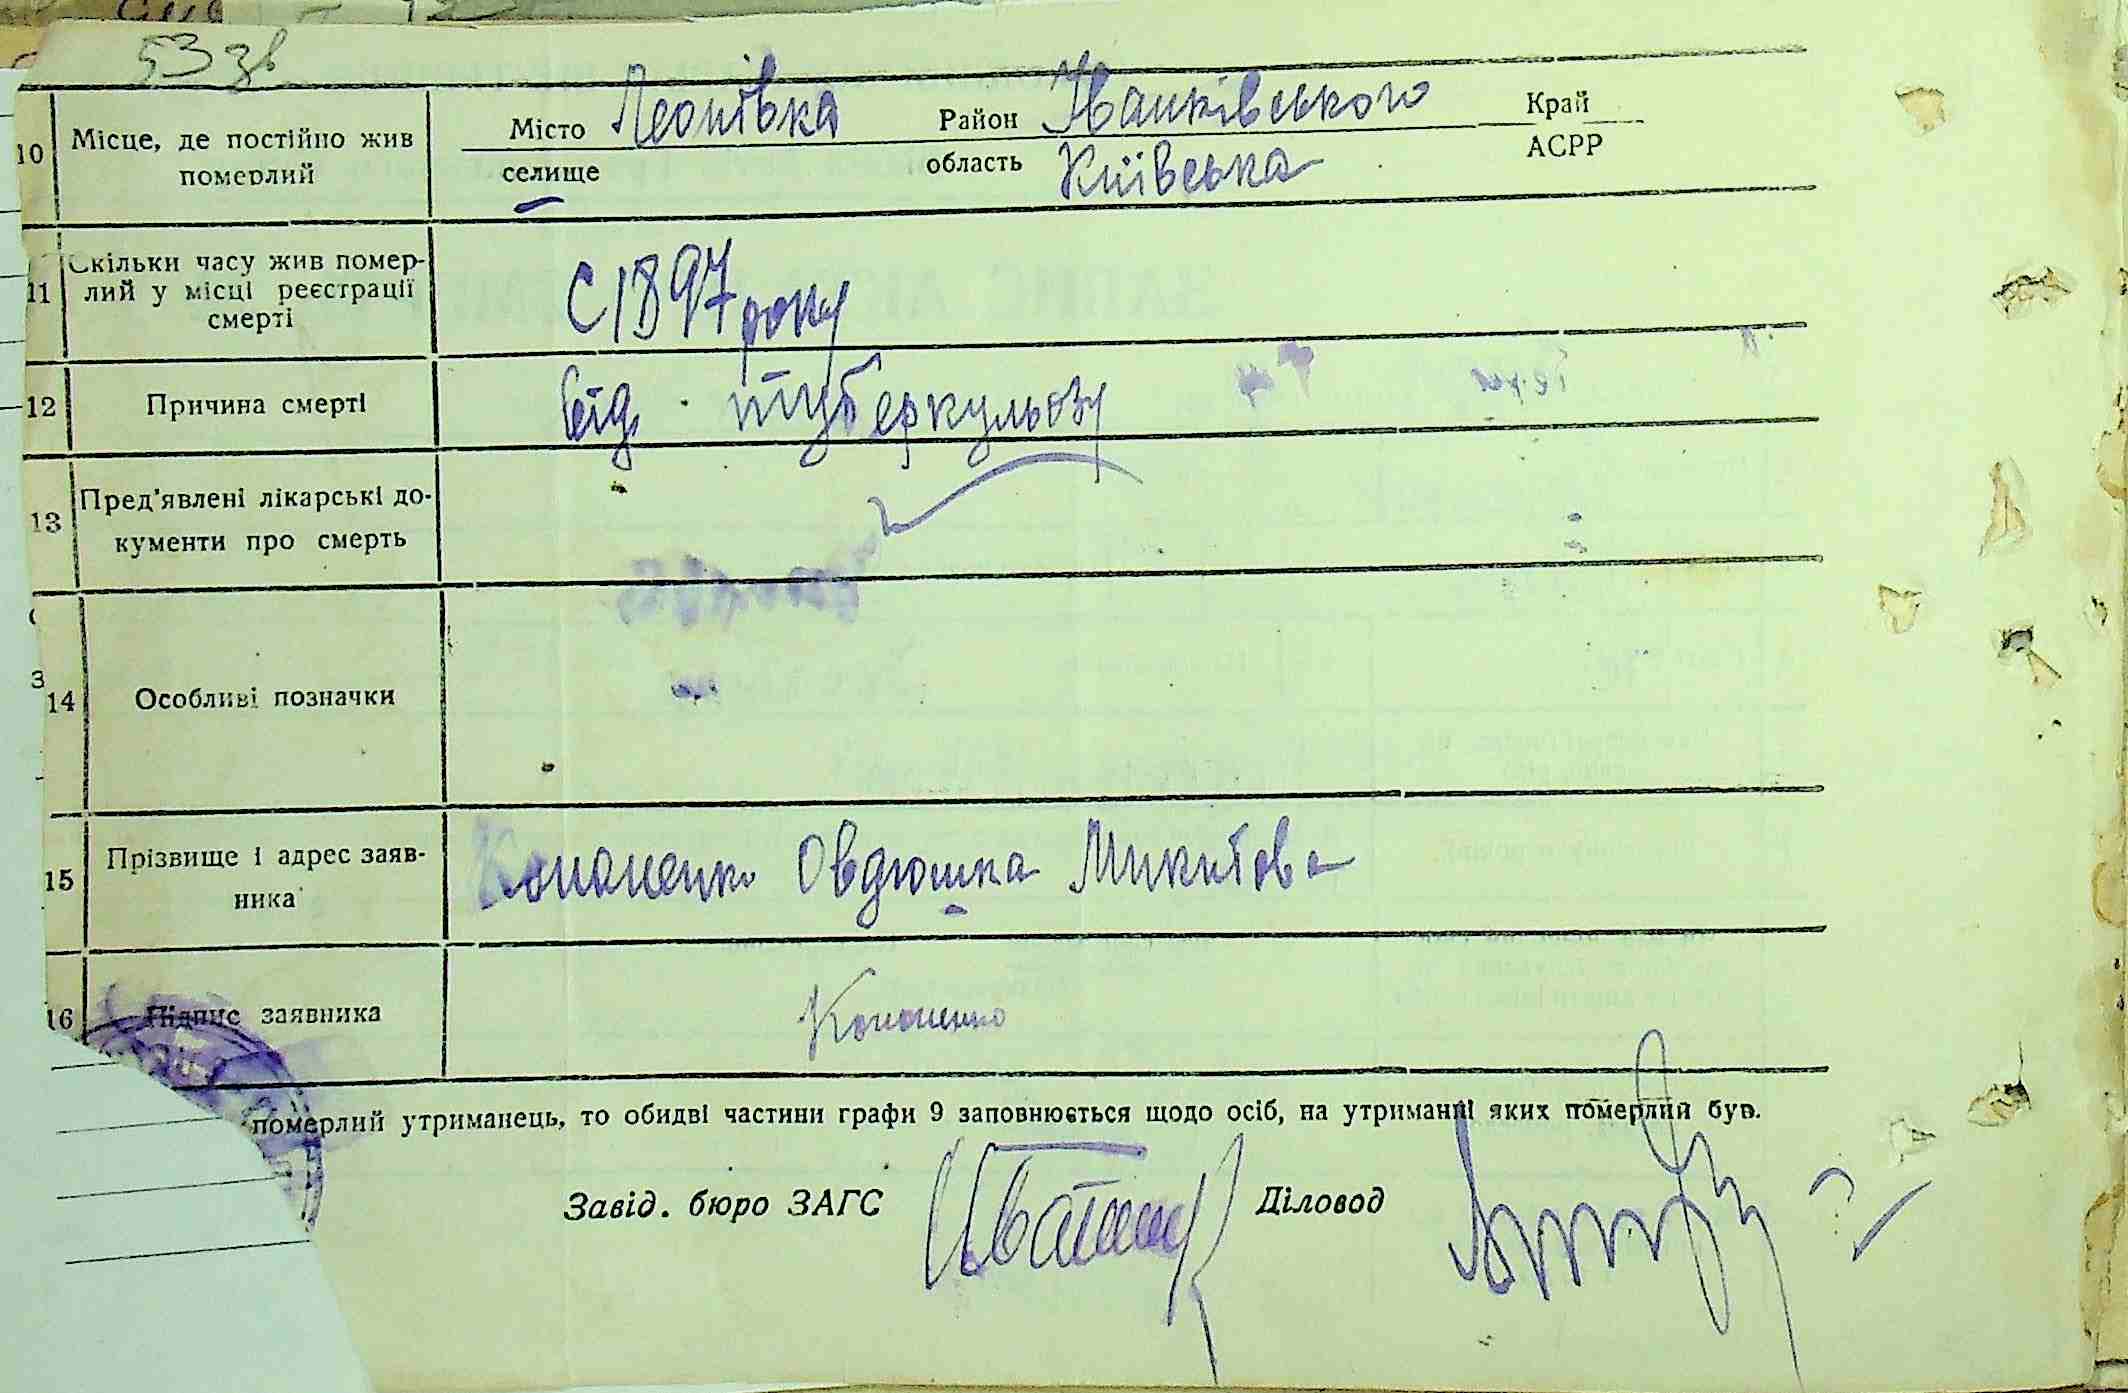 53 зв
10 Місце, де постійно жив померлий
Місто Леонівка Район Іванківського Край
селище область Київська АСРР
11 Скільки часу жив помер-
лий у місці реєстрації
смерті
С 1897 року
12 Причина смерті від туберкульозу
13 Пред'явлені лікарські до-
кументи про смерть
14 Особливі позначки
15 Прізвище і адрес заяв-
ника
Кононенко Овдюшка Микитова
16 Підпис заявника Кононенко
померлий утриманець, то обидві частини графи 9 заповнюється щодо осіб, на утриманні яких померлий був.
Завід. бюро ЗАГС Діловод